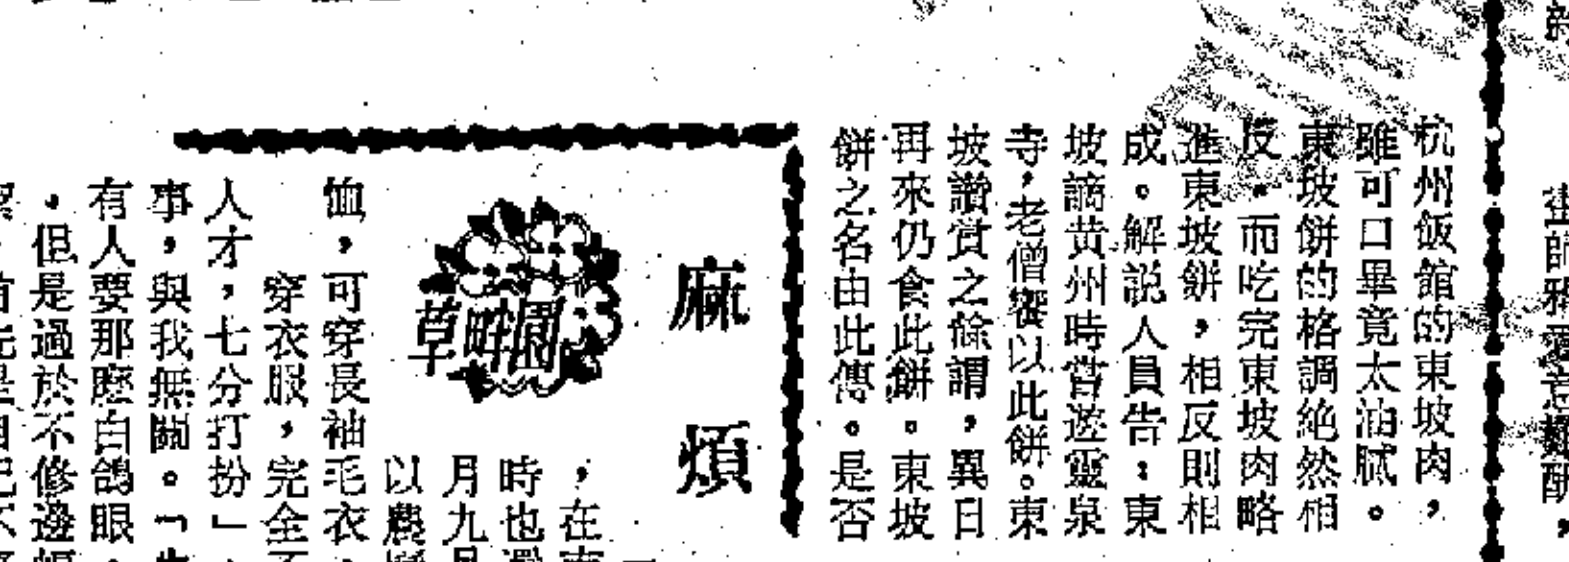 杭州飯館的東坡肉，
雖可口畢竟太油膩。
東玻餅的格調絶然相
反。而吃完東坡肉略
進東坡餅，相反則相
成。解説人員告：東
坡謫黄州時嘗遊靈泉
寺，老僧饗以此餅。東
坡讚賞之餘謂，異日
再來仍食此餅。東坡
餅之名由此傳。是否
麻煩
園畔草
，在
時也
月九月
以農
恤，可穿長袖毛衣
穿衣服，完全不
人才，七分打扮」
事，與我無關。「
有人要那麽白鴿眼
。但是過於不修邊幅